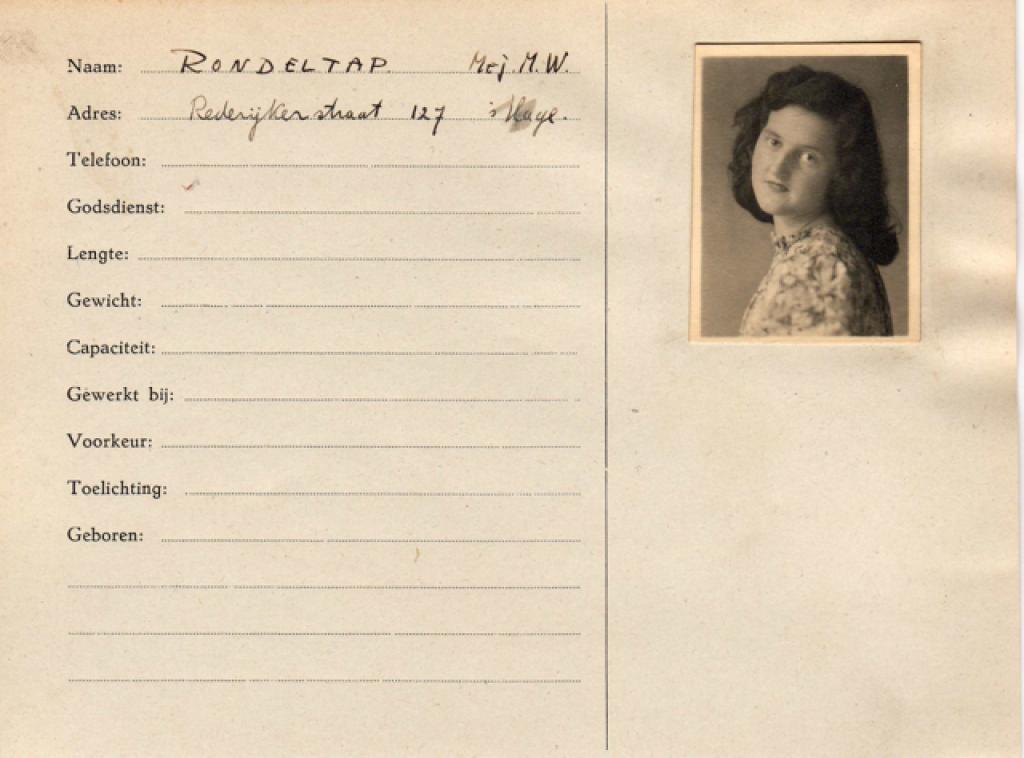 Naam: RONDELTAP. Mej. M.W.
Adres: Rederijkerstraat 127 's Hage.
Telefoon:
Godsdienst:
Lengte:
Gewicht:
Capaciteit:
Gewerkt bij:
Voorkeur:
Toelichting:
Geboren: